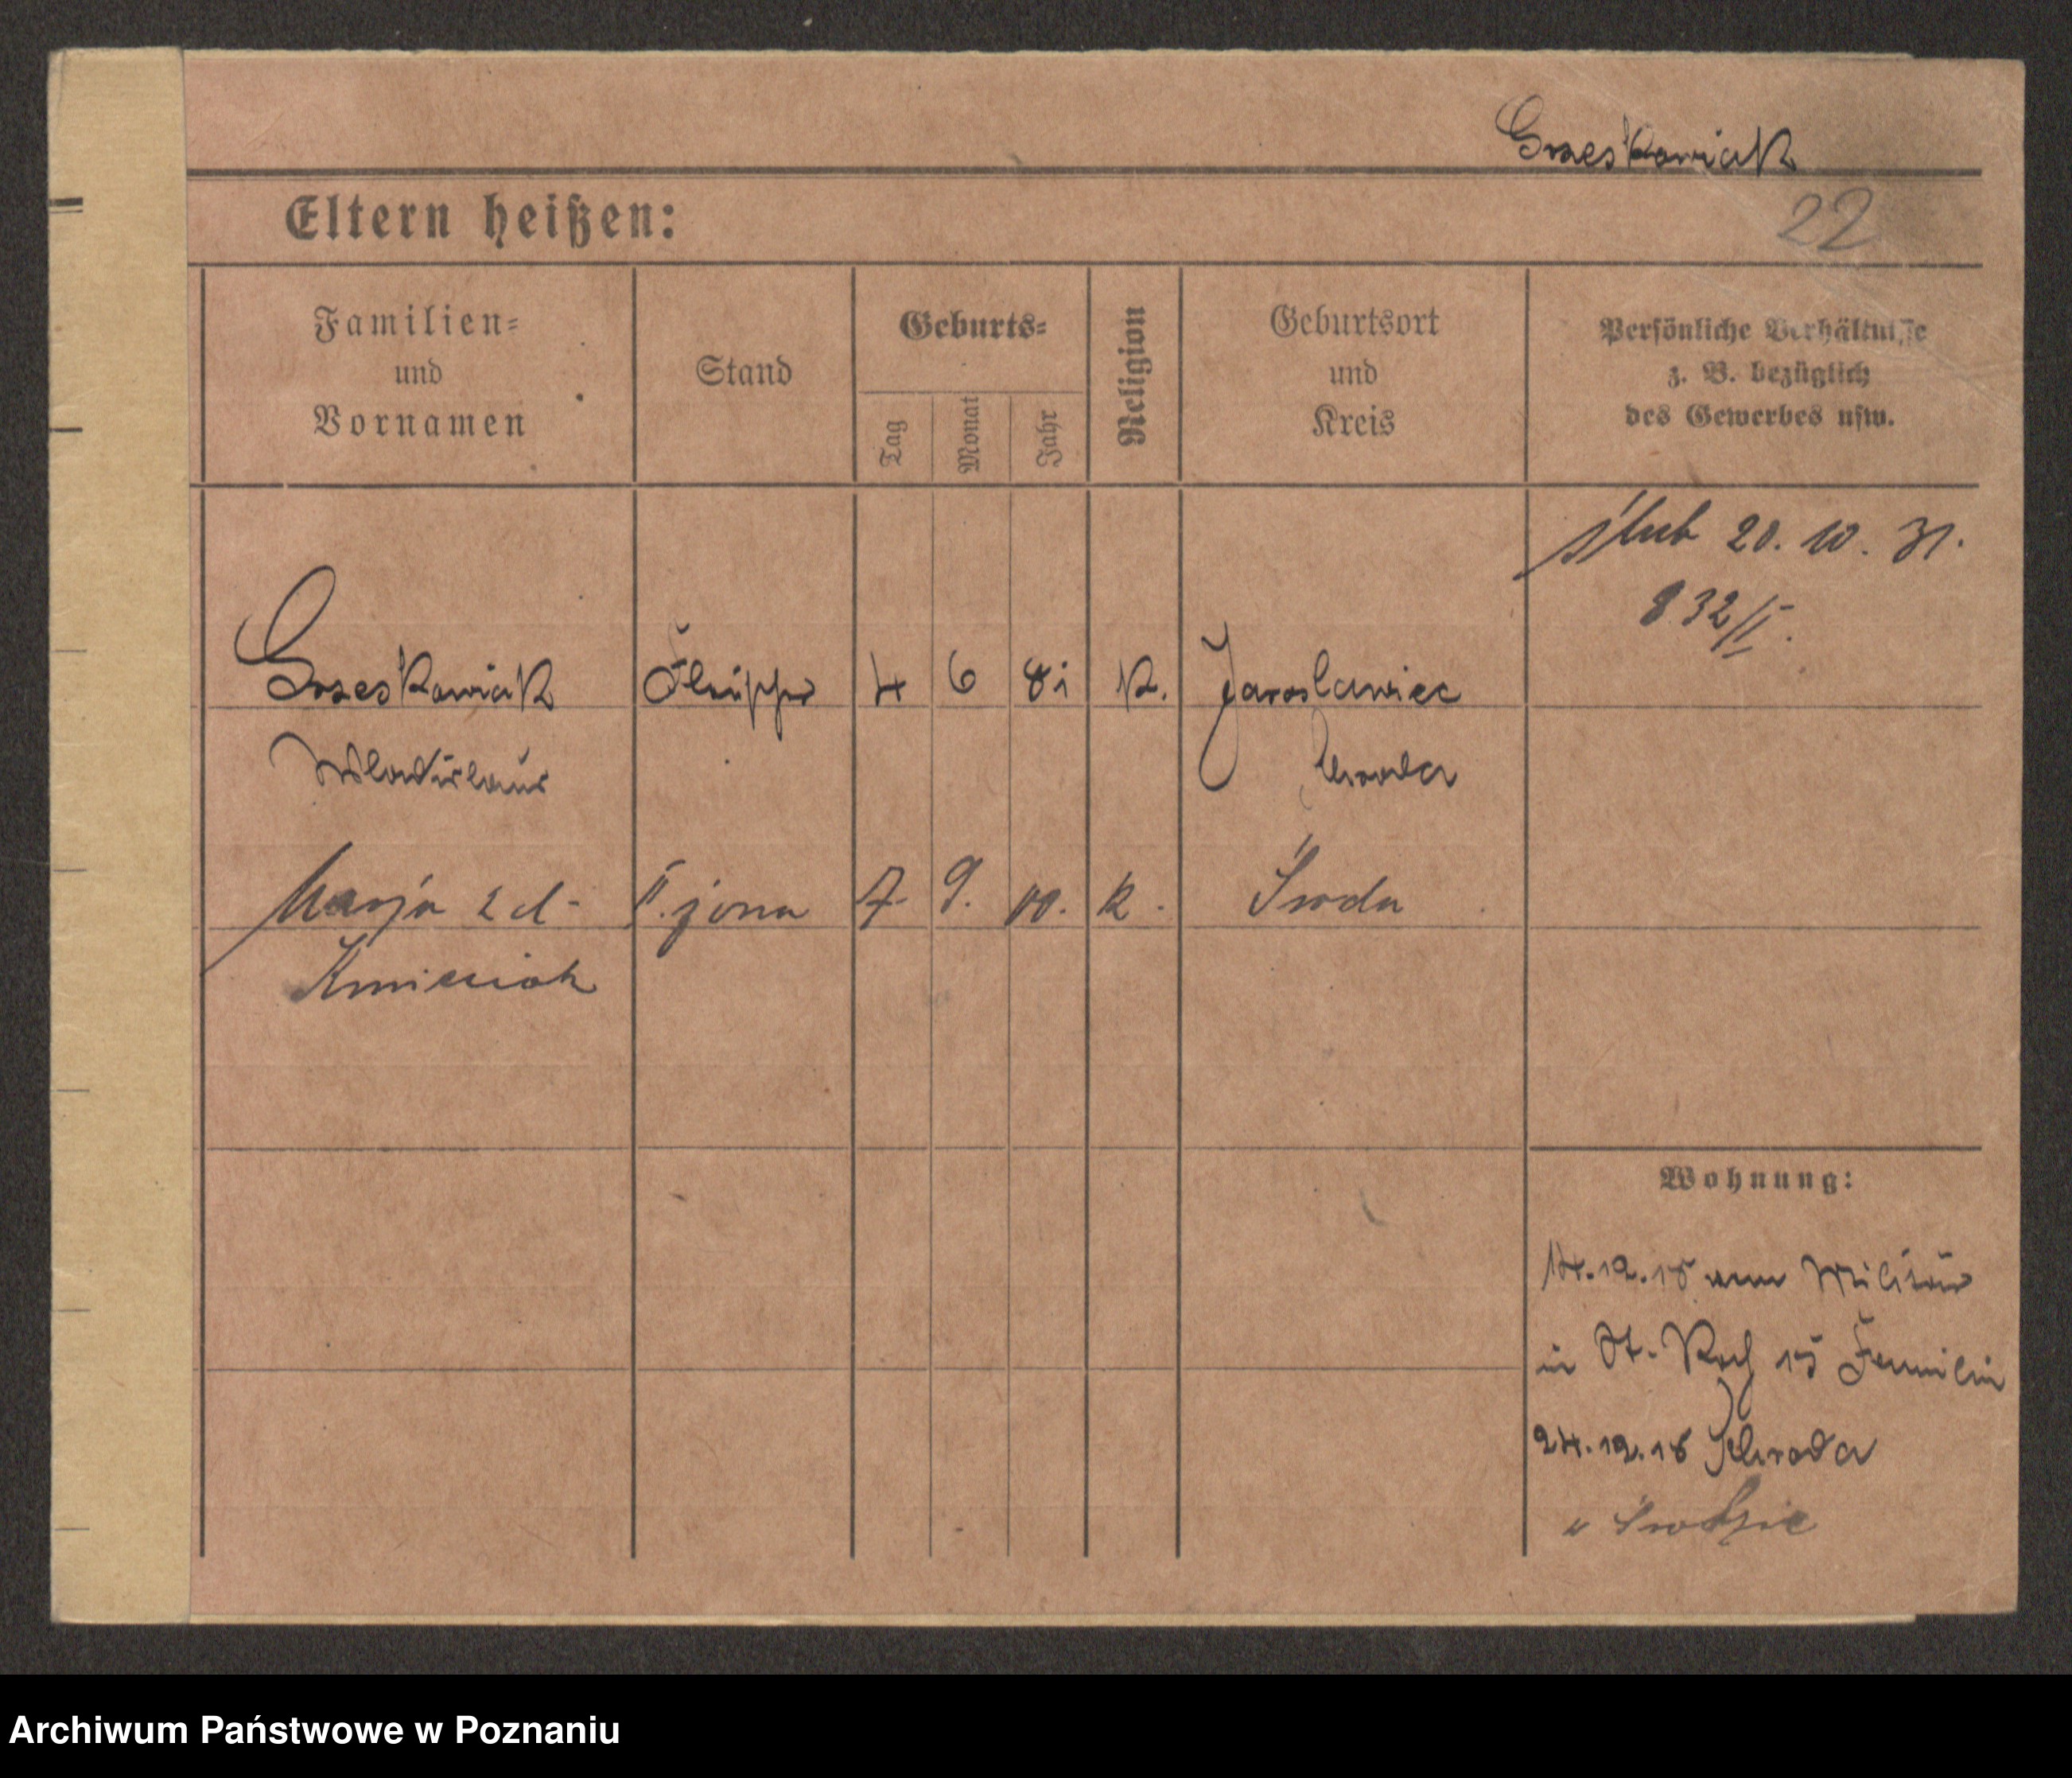 Grzeskowiak
22
Eltern heißen:
Familien-
und
Vornamen
Stand
Geburts-
Tag
Monat
Jahr
Religion
Geburtsort
und
Kreis
Persönliche Verhältnisse
z. B. bezüglich
des Gewerbes usw.
ślub 20. 10. 31.
832/II.
Grzeskowiak
4 6 81 K. Jaroslawiec
Wladislaus Schroda
Marja 2 d- II. żona 7. 9. 10. K. Środa
Kmieciak
Wohnung:
14.12.18 vom Militär
in St. Roch 15 Familie
24.12.18 Schroda
w Środzie
Archiwum Państwowe w Poznaniu